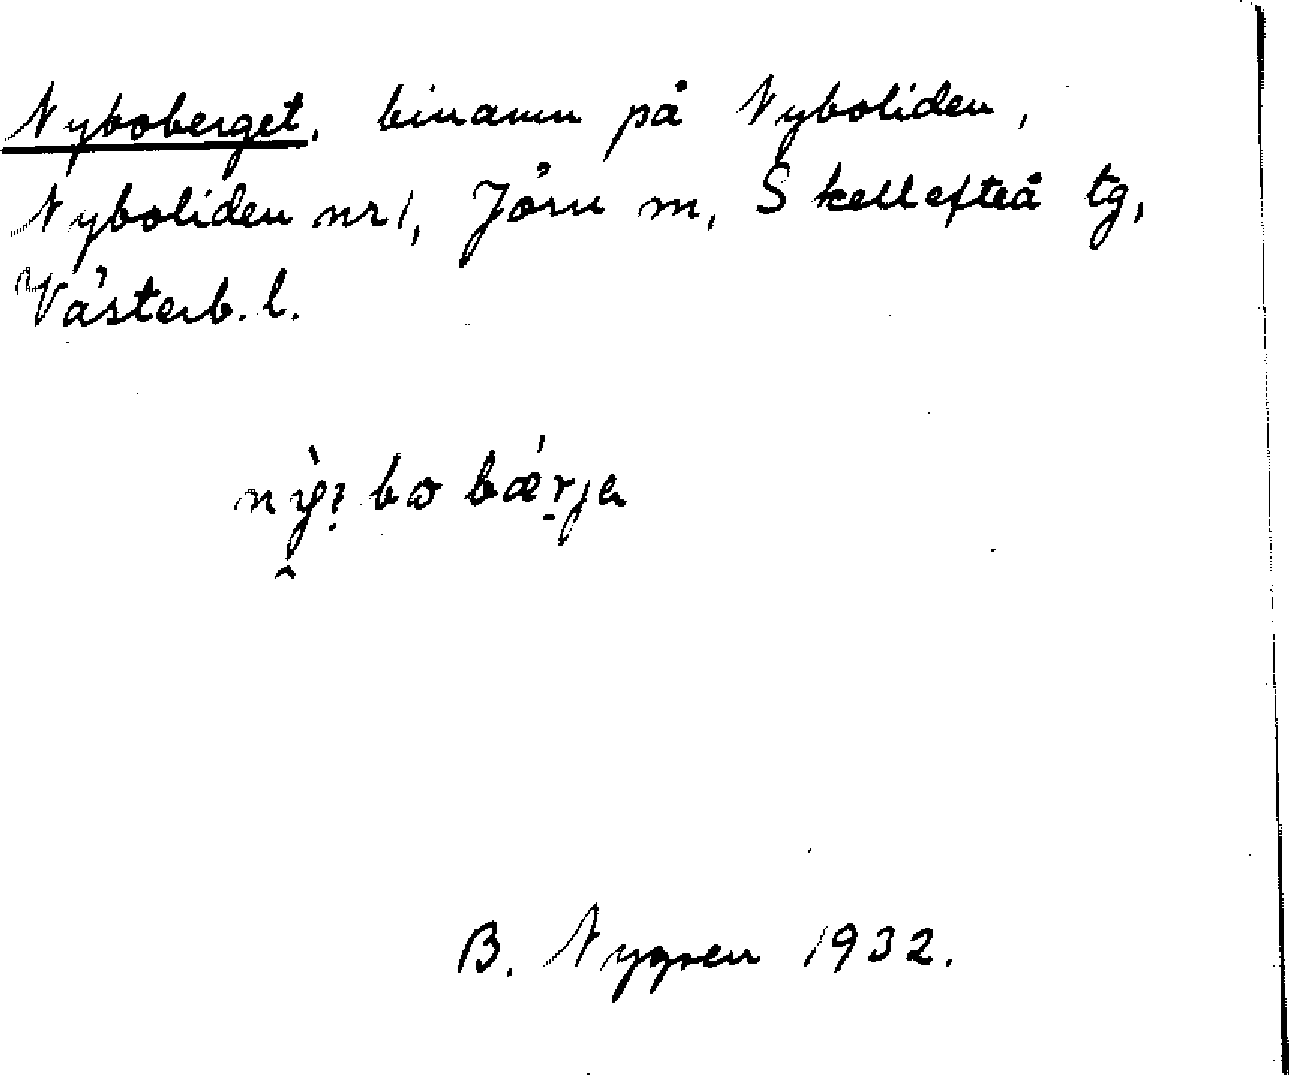 Nyboberget, binamn på Nyboliden,
Nyboliden nr 1, Jörn m, Skellefteå tg,
Västerb. l.
bo bǽrja
B. Nygren 1932.